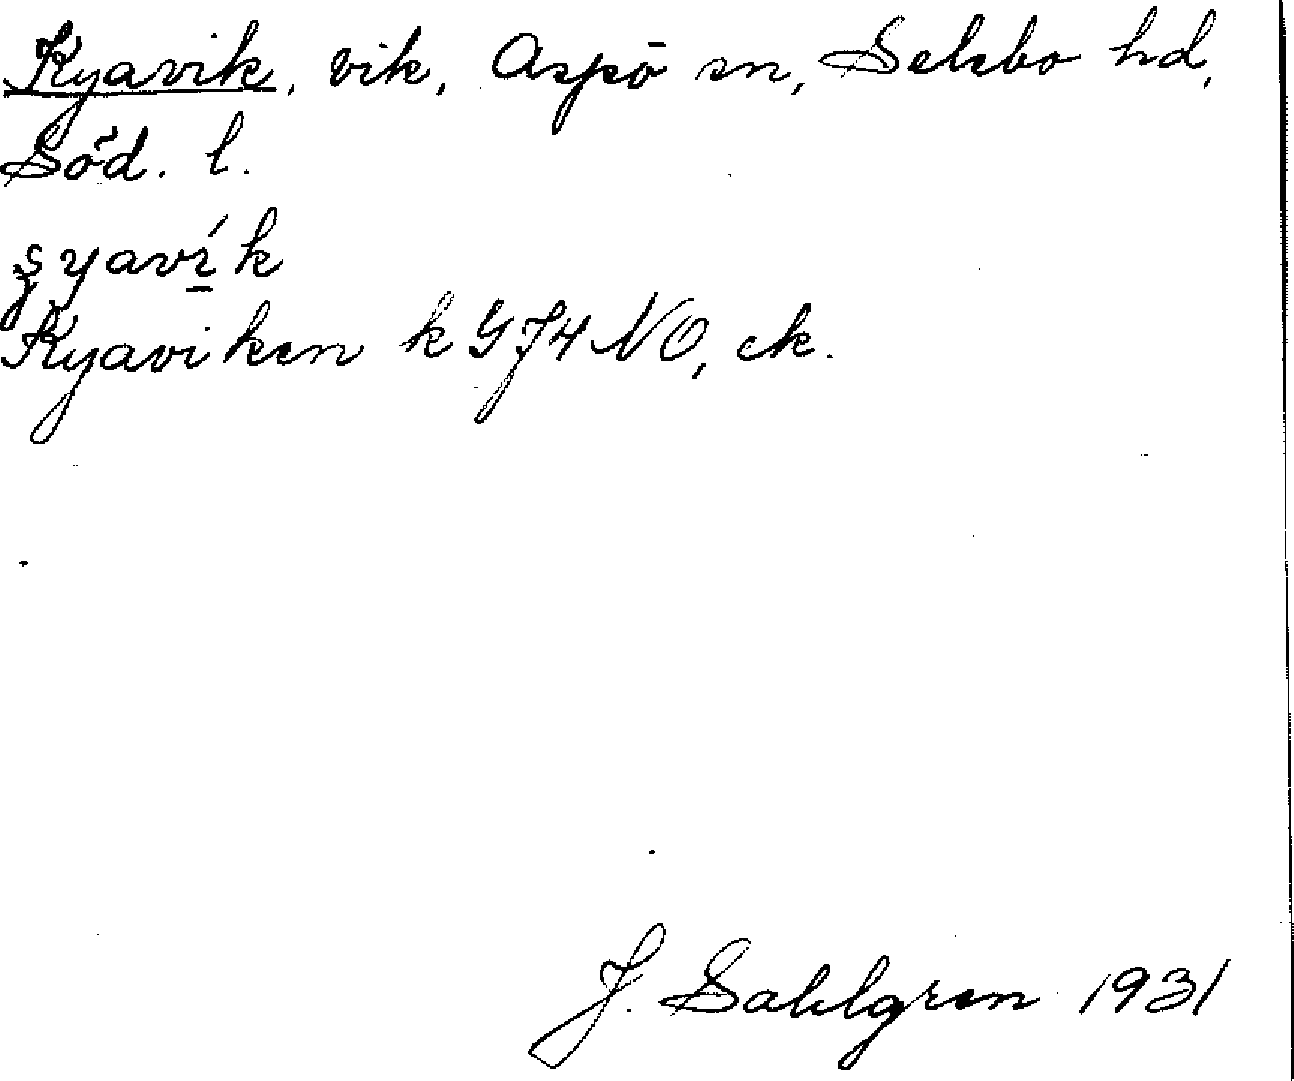 Kyavik, vik, Aspö sn, Selebo hd,
Söd. l.
Kyaviken k GJ4 NO, ek.
J. Sahlgren 1931